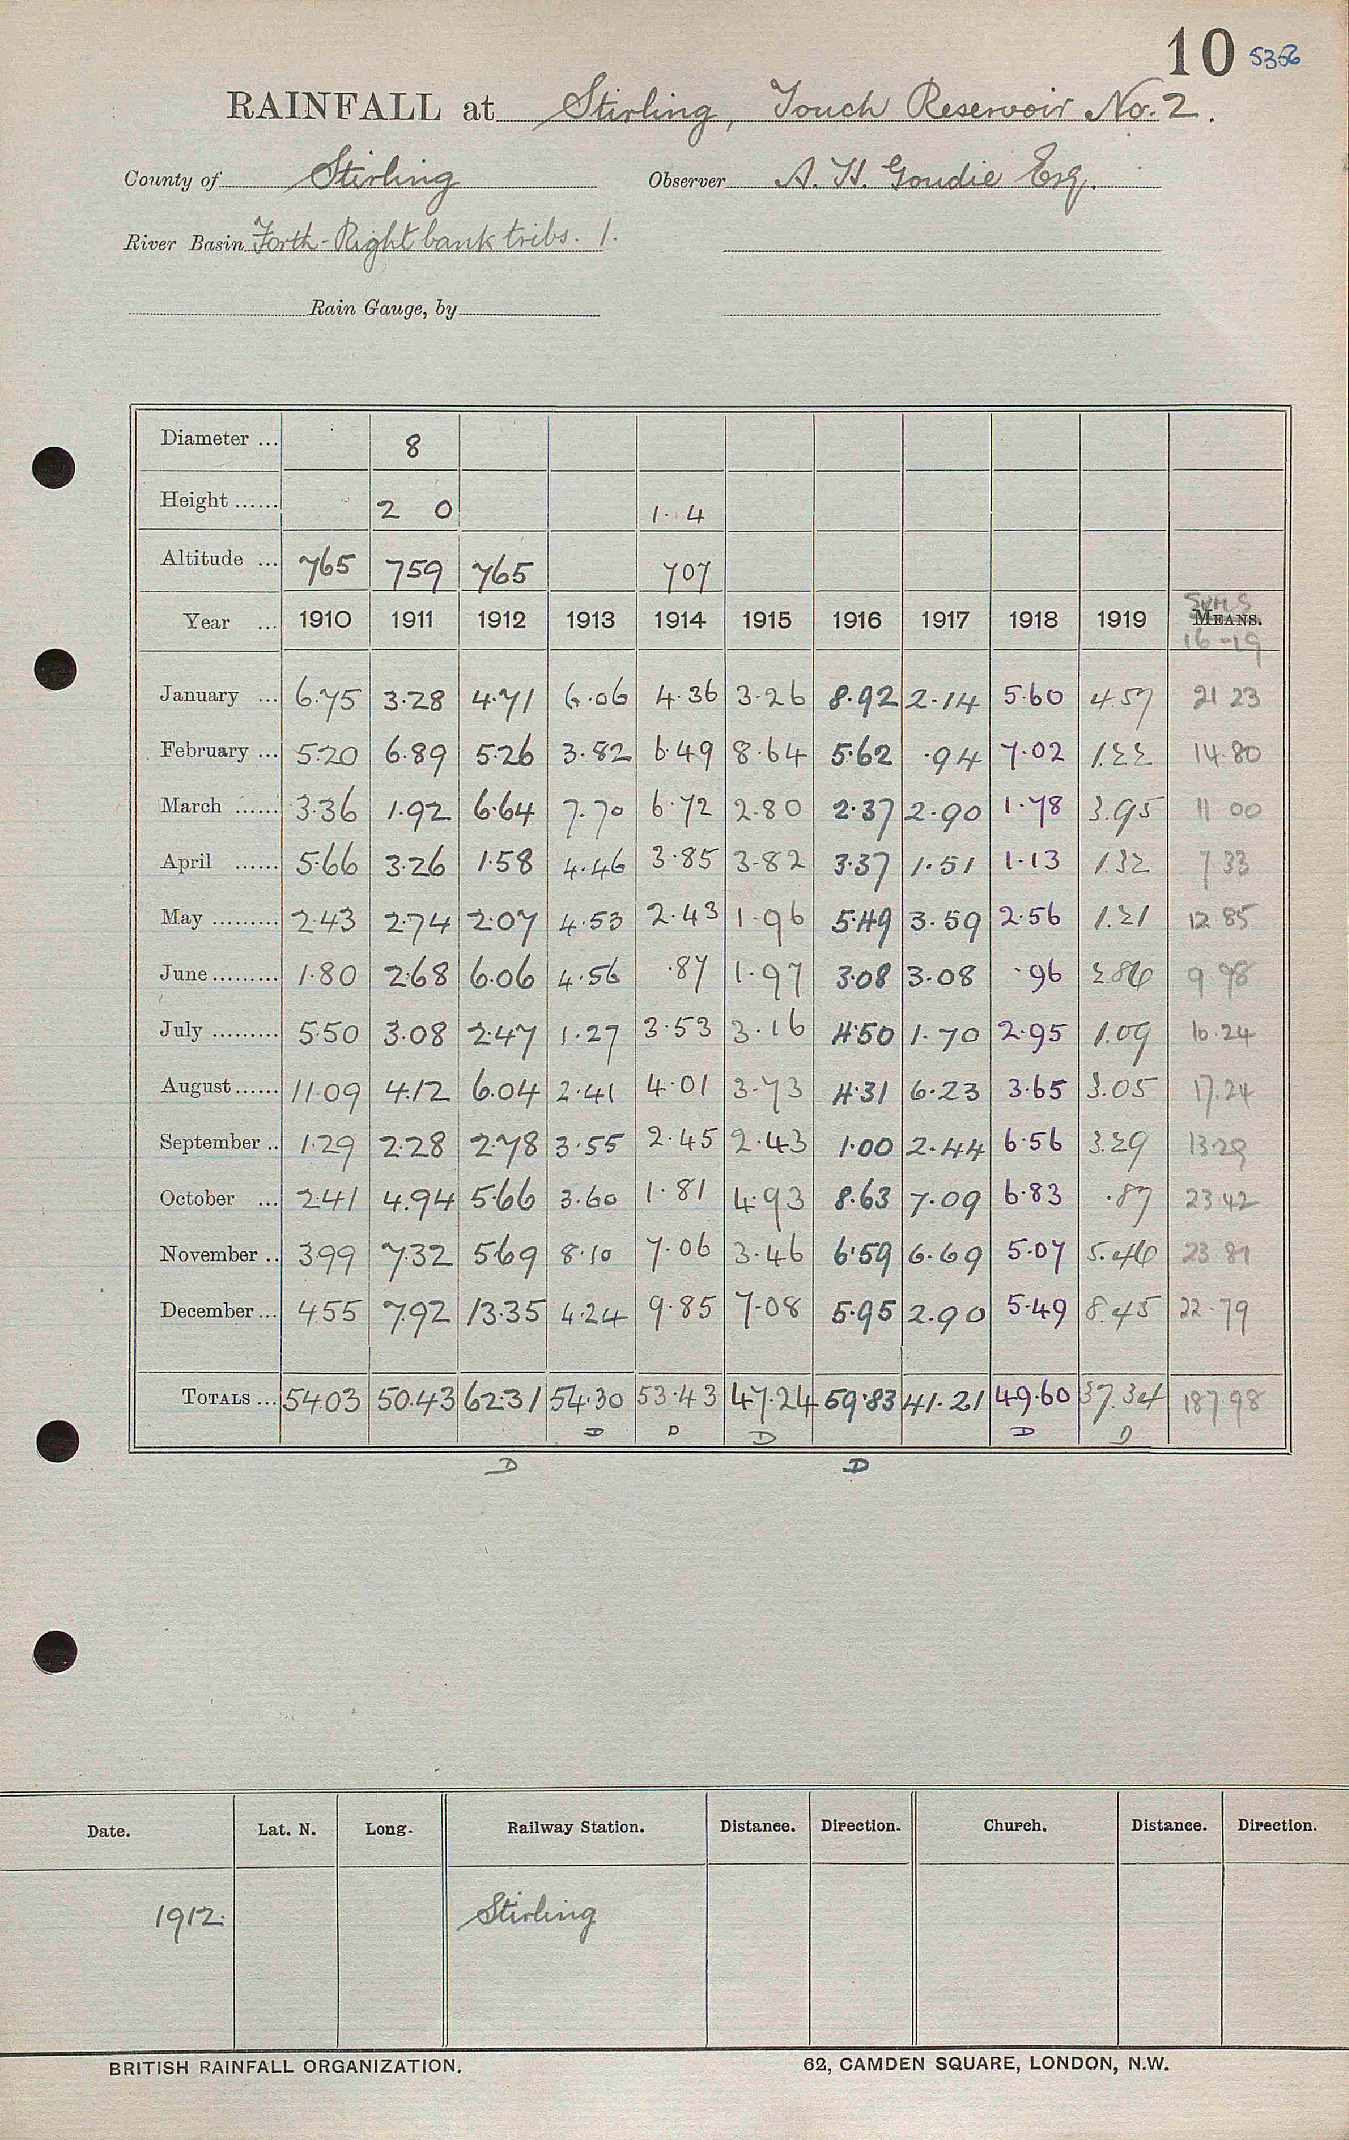 10 5356
RAINFALL at Stirling, Touch Reservoir No. 2.
County of Stirling Observer A. H. Goudie Esq.
River Basin Forth - Right bank tribs. 1.
Rain Gauge, by
Diameter ... 8
Height ...... 2 0 1. 4
Altitude ... 765 759 765 707
Year ... 1910 1911 1912 1913 1914 1915 1916 1917 1918 1919 SUMS MEANS. 16-19
January ... 6.75 3.28 4.71 6.06 4.36 3.26 8.92 2.14 5.60 4.57 21 23
February ... 5.20 6.89 5.26 3.82 6.49 8.64 5.62 .94 7.02 1.22 14.80
March ...... 3.36 1.92 6.64 7.70 6.72 2.80 2.37 2.90 1.78 3.95 11 00
April ...... 5.66 3.26 1.58 4.46 3.85 3.82 3.37 1.51 1.13 1.32 7 33
May ......... 2.43 2.74 2.07 4.53 2.43 1.96 5.49 3.59 2.56 1.21 12 85
June ......... 1.80 2.68 6.06 4.56 .87 1.97 3.08 3.08 .96 2.86 9 98
July ......... 5.50 3.08 2.47 1.27 3.53 3.16 4.50 1.70 2.95 1.09 10.24
August ...... 11.09 4.12 6.04 2.41 4.01 3.73 4.31 6.23 3.65 3.05 17.24
September .. 1.29 2.28 2.78 3.55 2.45 2.43 1.00 2.44 6.56 3.29 13 29
October ... 2.41 4.94 5.66 3.60 1.81 4.93 8.63 7.09 6.83 .87 23.42
November .. 3.99 7.32 5.69 8.10 7.06 3.46 6.59 6.69 5.07 5.46 23 81
December ... 4.55 7.92 13.35 4.24 9.85 7.08 5.95 2.90 5.49 8.45 22 79
TOTALS ... 54.03 50.43 62.31 54.30 53.43 47.24 59.83 41.21 49.60 37.34 187 98
D D D D D
D D
Date. Lat. N. Long. Railway Station. Distance. Direction. Church. Distance. Direction.
1912. Stirling
BRITISH RAINFALL ORGANIZATION. 62, CAMDEN SQUARE, LONDON, N.W.